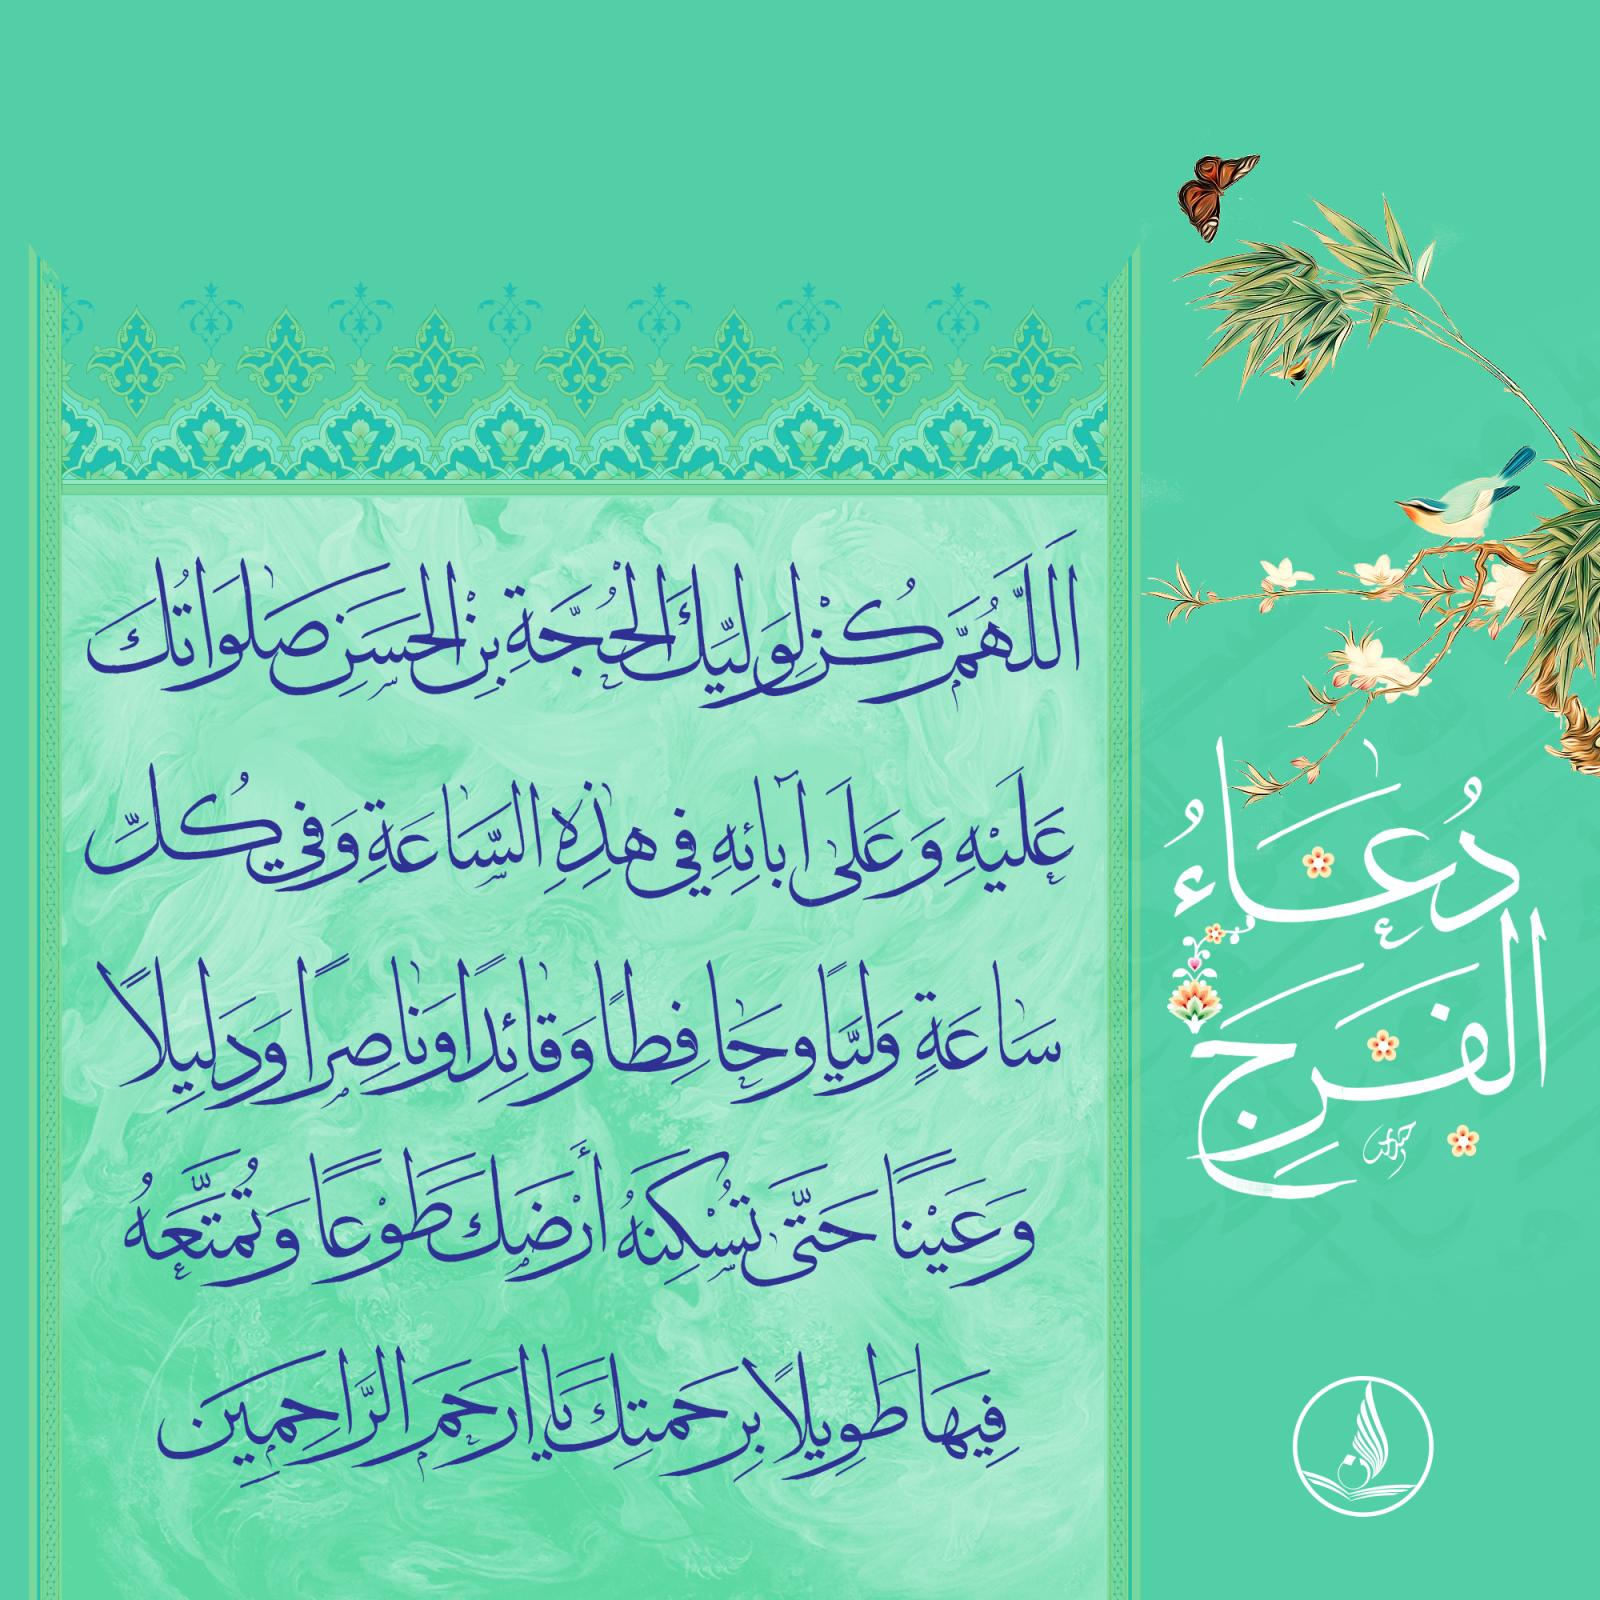 دُعَاءُ
الفَرَجِ
اَللَّهُمَّ كُنْ لِوَلِيِّكَ الْحُجَّةِ بْنِ الْحَسَنِ صَلَواتُكَ
عَلَيْهِ وَ عَلَى آبائِهِ فِي هذِهِ السَّاعَةِ وَ فِي كُلِّ
سَاعَةٍ وَلِيًّا وَ حَافِظًا وَ قائِدًا وَ ناصِرًا وَ دَلِيلًا
وَ عَيْنًا حَتَّى تُسْكِنَهُ أَرْضَكَ طَوْعًا وَ تُمَتِّعَهُ
فِيها طَوِيلًا بِرَحمَتِكَ يَا ارحَمَ الرَّاحِمِينَ